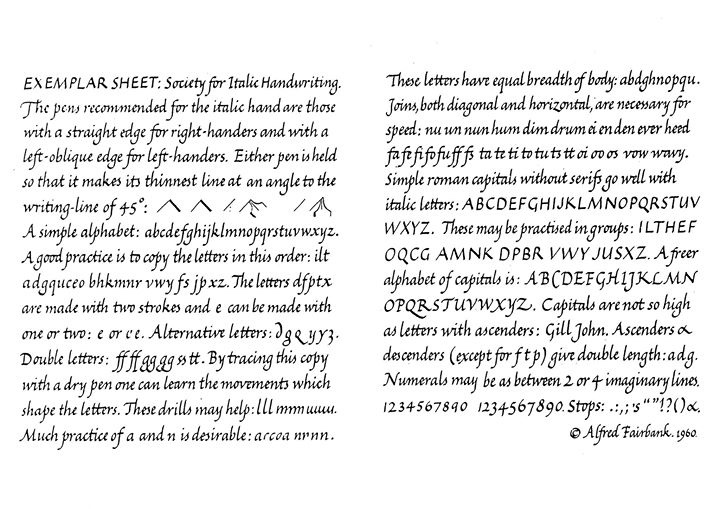 EXEMPLAR SHEET: Society for Italic Handwriting.
The pens recommended for the italic hand are those
with a straight edge for right-handers and with a
left-oblique edge for left-handers. Either pen is held
so that it makes its thinnest line at an angle to the
writing-line of 45°:
A simple alphabet: abcdefghijklmnopqrstuvwxyz.
A good practice is to copy the letters in this order: ilt
adgquceo bhkmnr vwy fs jp xz. The letters dfptx
are made with two strokes and e can be made with
one or two: e or e. Alternative letters: y y z.
Double letters: ff ff gg gg ss tt. By tracing this copy
with a dry pen one can learn the movements which
shape the letters. These drills may help: lll mmm uuuu.
Much practice of a and n is desirable: arcoa nrnn.
These letters have equal breadth of body: abdghnopqu.
Joins, both diagonal and horizontal, are necessary for
speed: nu un nun hum dim drum ei en den ever heed
fa fe fi fo fu ff fs ta te ti to tu ts tt oi oo os vow wavy.
Simple roman capitals without serifs go well with
italic letters: ABCDEFGHIJKLMNOPQRSTUV
WXYZ. These may be practised in groups: ILTHEF
OQCG AMNK DPBR VWY JUSXZ. A freer
alphabet of capitals is: ABCDEFGHIJKLMN
OPQRSTUVWXYZ. Capitals are not so high
as letters with ascenders: Gill John. Ascenders &
descenders (except for f t p) give double length: a d g.
Numerals may be as between 2 or 4 imaginary lines.
1234567890 1234567890. Stops: .:,;'s “ ” ! ? ( ) &.
© Alfred Fairbank. 1960.